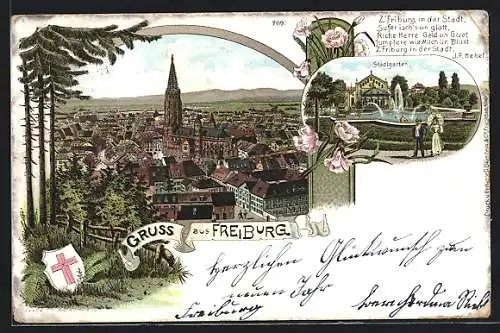 Z'Friburg in der Stadt,
Sufer isch's un glatt,
Richi Herre Geld un Guet
Jumpfere wie Milch un Bluet
Z'Friburg in der Stadt.
J.P. Hebel.
Stadtgarten
GRUSS aus FREIBURG.
herzlichen Glückwunsch zum
neuen Jahr
Freiburg